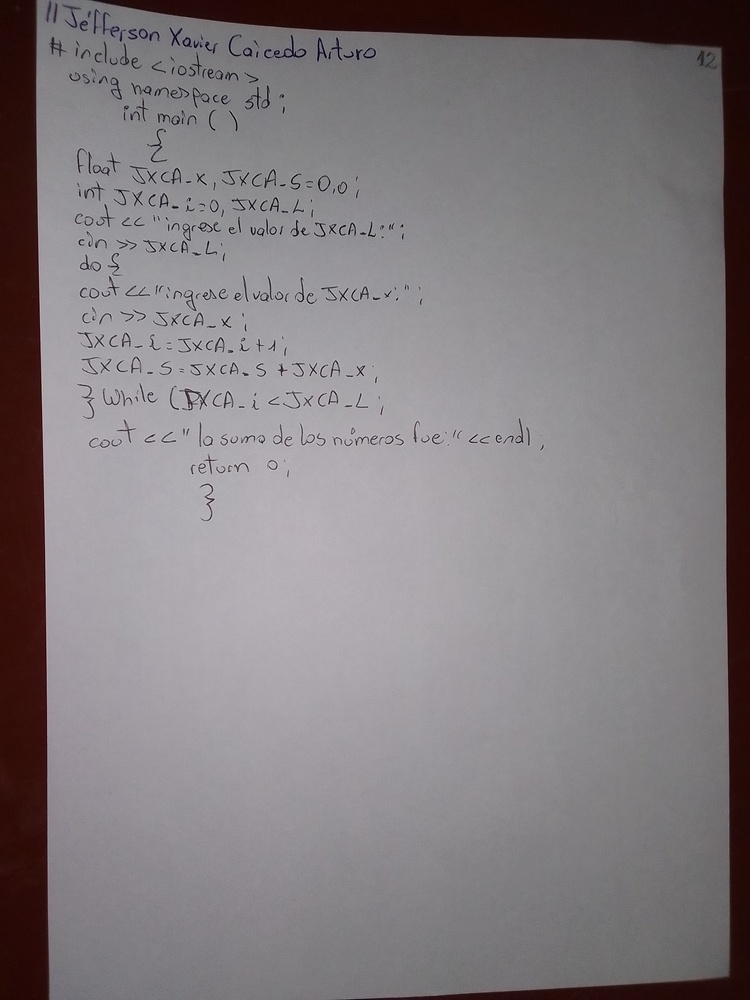 //Jéfferson Xavier Caicedo Arturo
12
# include <iostream>
using namespace std;
int main ( )
{
float JXCA_x, JXCA_S=0,0;
int JXCA_i=0, JXCA_L;
cout << "ingrese el valor de JXCA_L:";
cin >> JXCA_L;
do {
cout <<"ingrese el valor de JXCA_x:";
cin >> JXCA_x;
JXCA_i=JXCA_i+1;
JXCA_S=JXCA_S+JXCA_x;
} While (JXCA_i<JXCA_L;
cout <<" la suma de los números fue:" <<endl;
return 0;
}